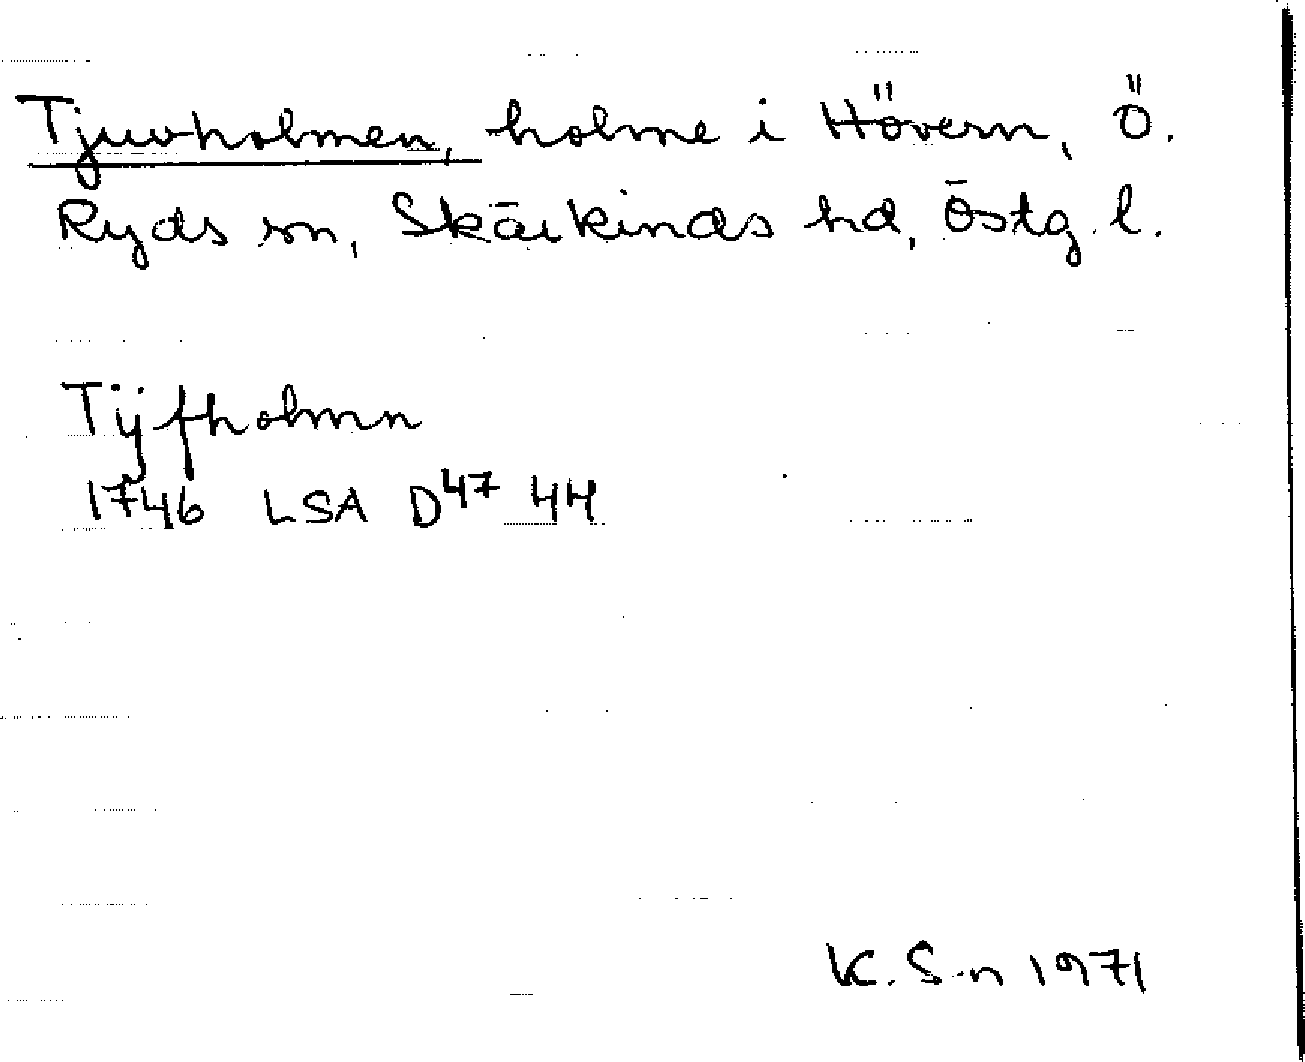 Tjuvholmen, holme i Hövern, Ö.
Ryds sn, Skärkinds hd, Östg. l.
Tijfholmn
1746 LSA D47 44
K. S-n 1971